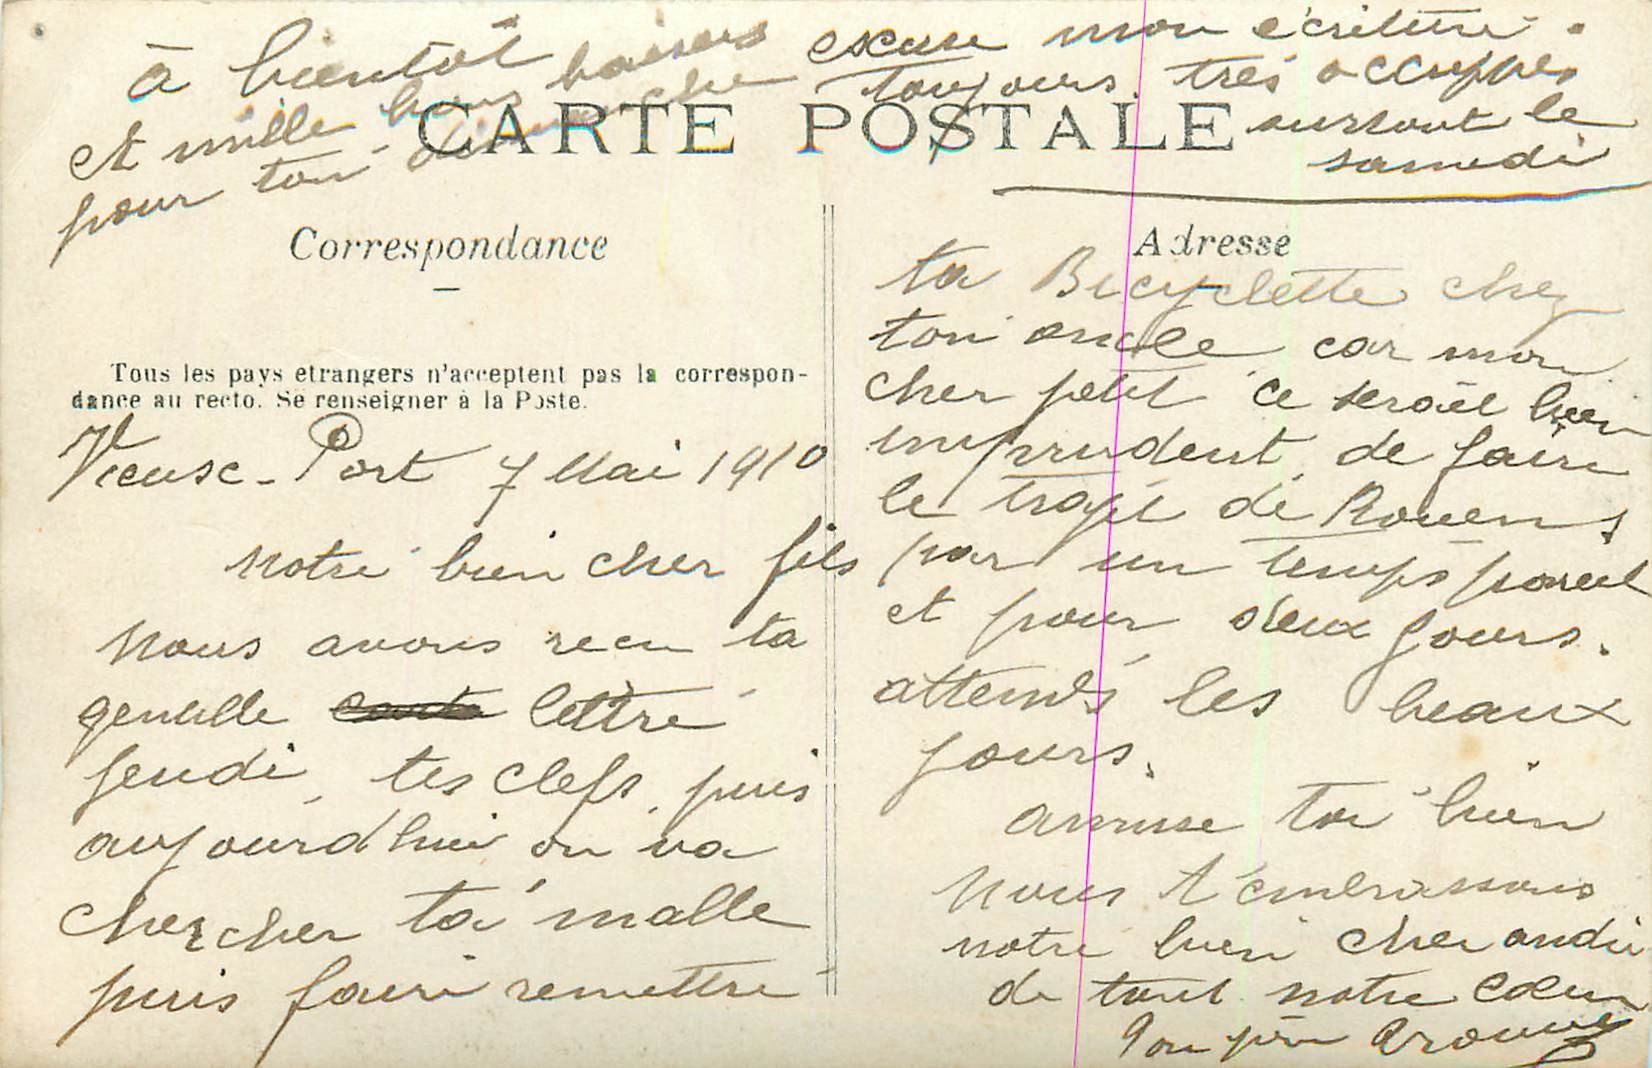 à bientôt
et mille bons baisers
pour ton dimanche
excuse mon écriture.
toujours très occupés
surtout le
samedi
CARTE POSTALE
Correspondance
Adresse
Tous les pays etrangers n'acceptent pas la correspon-
dance au recto. Se renseigner à la Poste.
Vieux-Port 7 Mai 1910
notre bien cher fils
nous avons recu ta
gentille carte lettre
jeudi, tes clefs, puis
aujourd'hui on va
chercher ta malle
puis faire remettre
ta Bicyclette chez
ton oncle car mon
cher petit ce serait bien
imprudent de faire
le trajet de Rouen
par un temps pareil
et pour deux jours.
attends les beaux
jours.
amuse toi bien
nous t'embrassons
notre bien cher andré
de tout notre coeur
Ton père